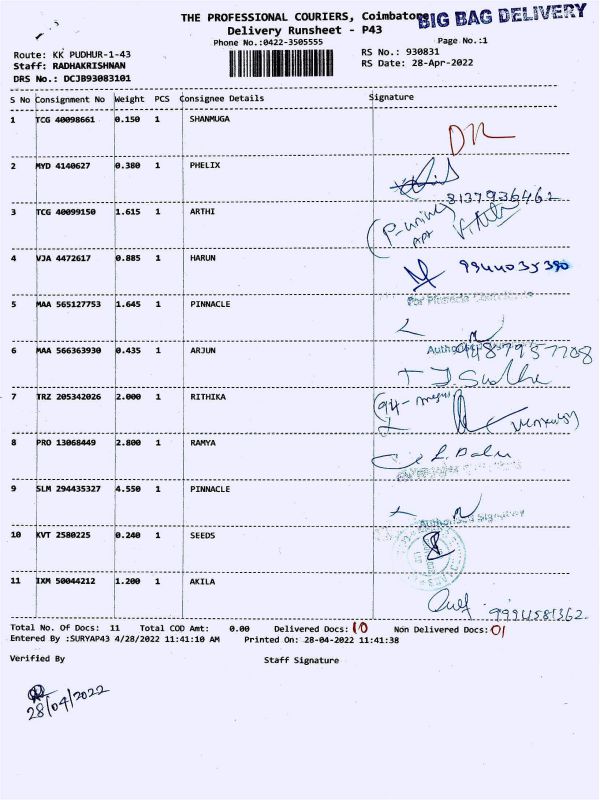 THE PROFESSIONAL COURIERS, Coimbatore
BIG BAG DELIVERY
Delivery Runsheet - P43
Phone No.:0422-3505555
Page No.:1
Route: KK PUDHUR-1-43
RS No.: 930831
Staff: RADHAKRISHNAN
RS Date: 28-Apr-2022
DRS No.: DCJB93083101
S No Consignment No Weight PCS Consignee Details Signature
1 TCG 40098661 0.150 1 SHANMUGA
DR
2 MYD 4140627 0.380 1 PHELIX
8137936462
3 TCG 40099150 1.615 1 ARTHI
4 VJA 4472617 0.885 1 HARUN
9944035390
5 MAA 565127753 1.645 1 PINNACLE
6 MAA 566363930 0.435 1 ARJUN
9487957708
7 TRZ 205342026 2.000 1 RITHIKA
8 PRO 13068449 2.800 1 RAMYA
9 SLM 294435327 4.550 1 PINNACLE
Authorised Signatory
10 KVT 2580225 0.240 1 SEEDS
11 IXM 50044212 1.200 1 AKILA
9994581362
Total No. Of Docs: 11 Total COD Amt: 0.00 Delivered Docs: 10 Non Delivered Docs: 01
Entered By :SURYAP43 4/28/2022 11:41:10 AM Printed On: 28-04-2022 11:41:38
Verified By Staff Signature
28/04/2022